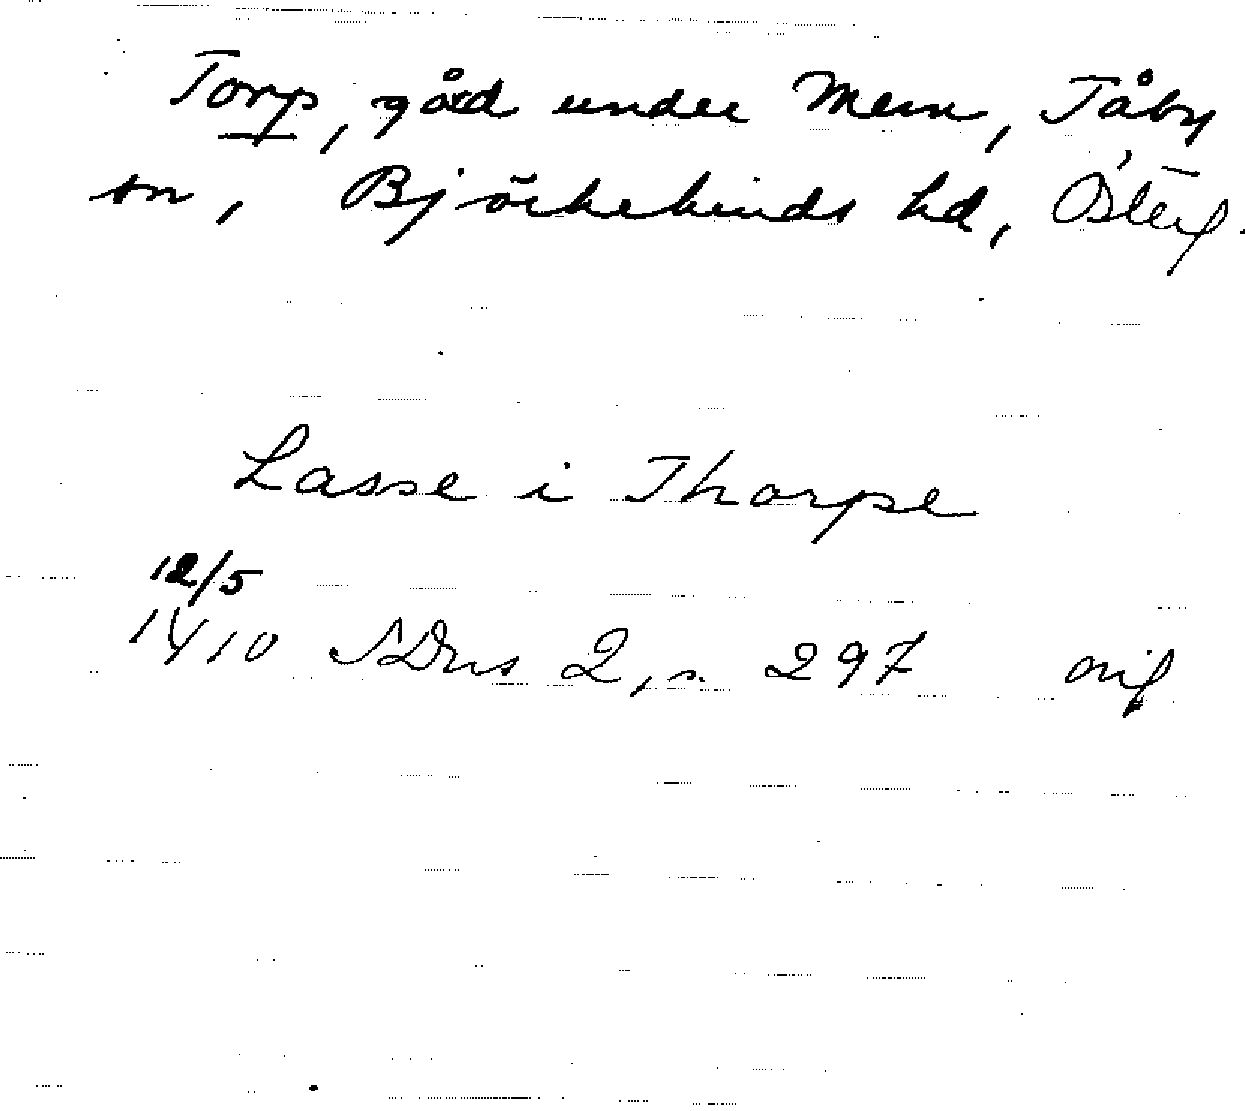 Torp, gård under Mem, Tåby
sn, Björkekinds hd, Österg.
Lasse i Thorpe
12/5
1410 SDns 2, s. 297 orig